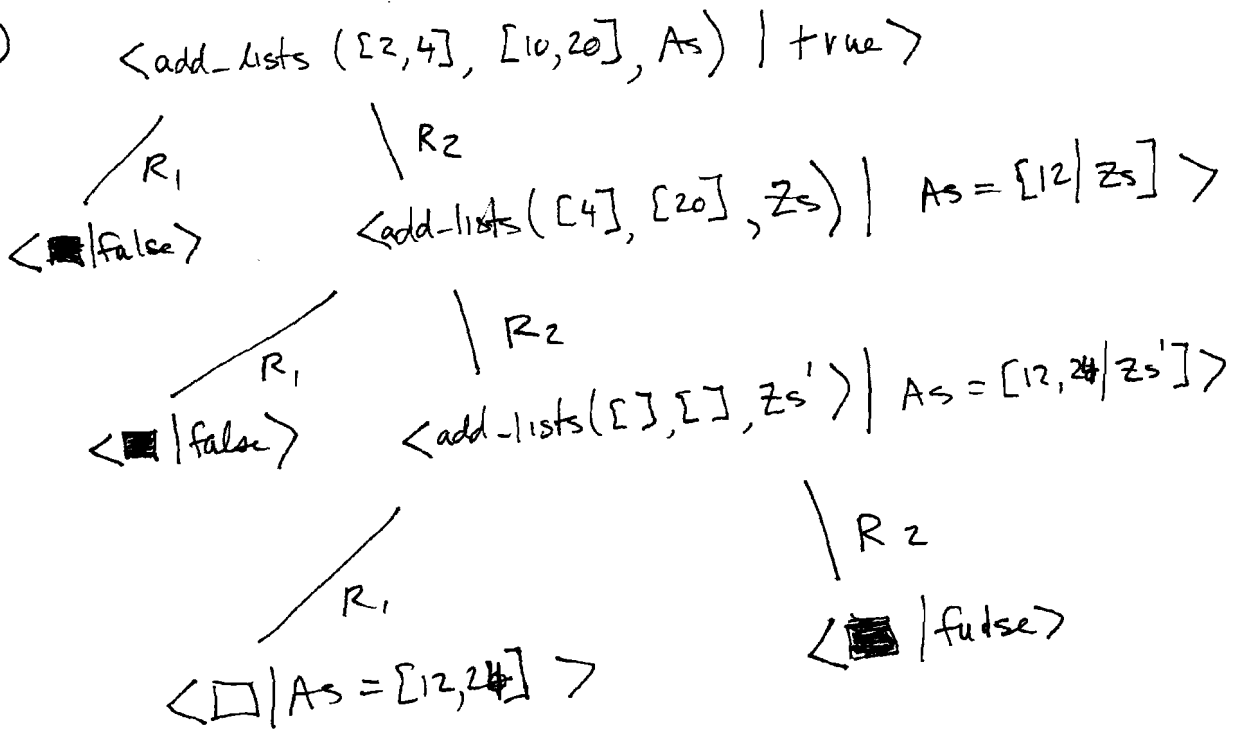 )
<add_lists ([2,4], [10,20], As) | true>
R1
R2
<■|false>
<add-lists([4], [20], Zs) | As = [12|Zs] >
R1
R2
<■|false>
<add-lists([],[], Zs') | As = [12,24|Zs']>
R1
R2
<□|As = [12,24] >
<■|false>